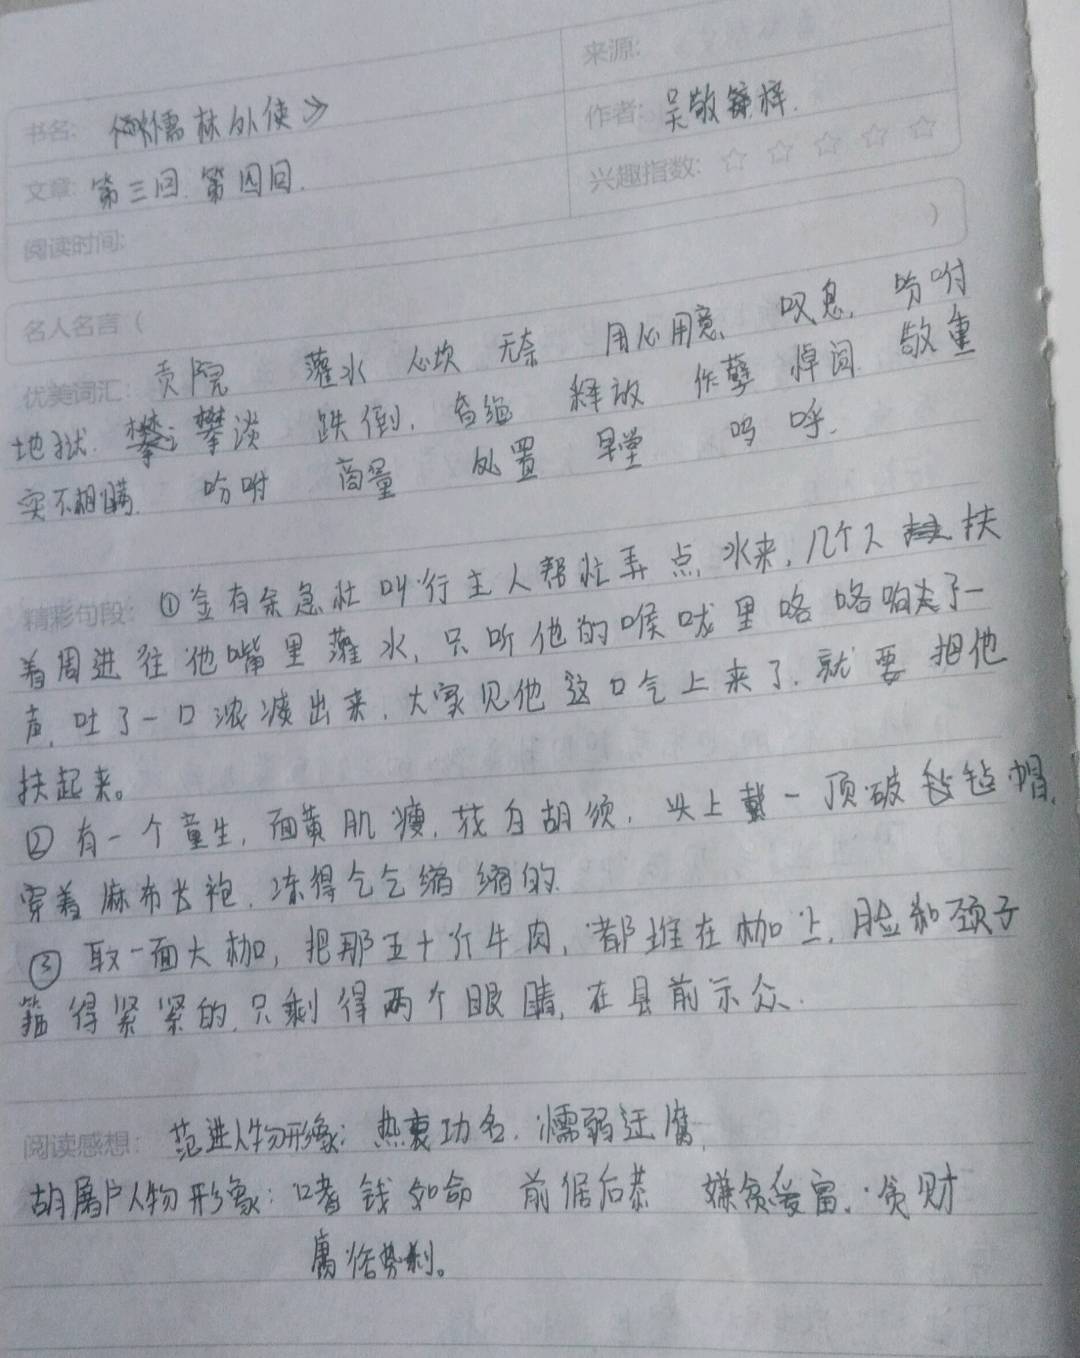 来源:
书名: 《儒林外使》
作者: 吴敬梓.
文章: 第三回. 第四回.
兴趣指数: ☆ ☆ ☆ ☆ ☆
阅读时间:
名人名言 ( )
优美词汇: 贡院 灌水 心坎 无奈 用心用意 叹息. 吩咐
地狱. 攀谈 跌倒. 昏绝 释放 作孽 悼词 敬重
实不相瞒. 吩咐 商量 处置 早堂 呜呼.
精彩句段: ①金有余急忙叫行主人帮忙弄点水来, 几个人扶
着周进往他嘴里灌水, 只听他的喉咙里咯咯响了一
声, 吐了一口浓痰出来. 大家见他这口气上来了. 就要把他
扶起来。
②有一个童生, 面黄肌瘦, 花白胡须, 头上戴一顶破毡帽,
穿着麻布长袍. 冻得乞乞缩缩的.
③取一面大枷, 把那五十斤牛肉, 都堆在枷上, 脸和颈子
箍得紧紧的, 只剩得两个眼睛, 在县前示众.
阅读感想: 范进人物形象: 热衷功名. 懦弱迂腐.
胡屠户人物形象: 嗜钱如命 前倨后恭 嫌贫爱富. 贪财
庸俗势利。